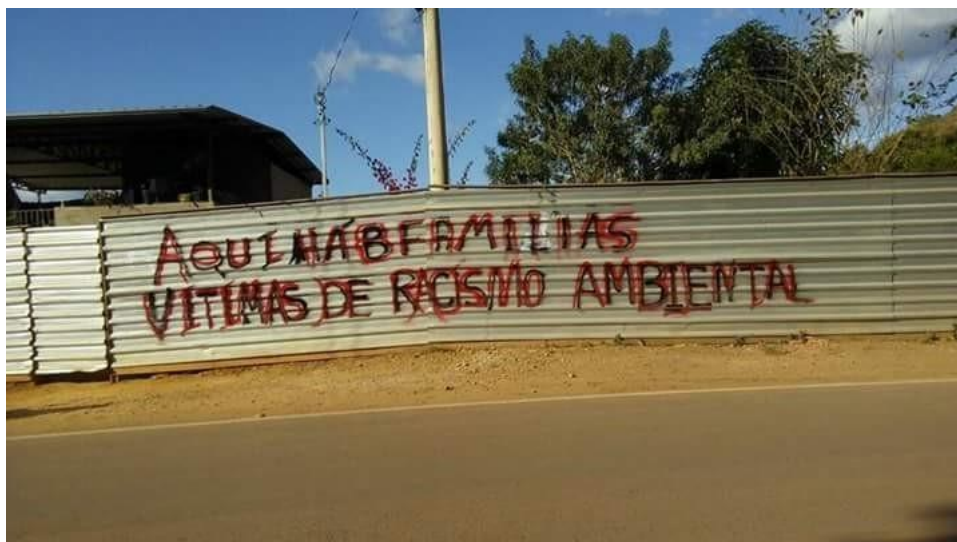 AQUI HÁ 8 FAMILIAS
VITIMAS DE RACISMO AMBIENTAL